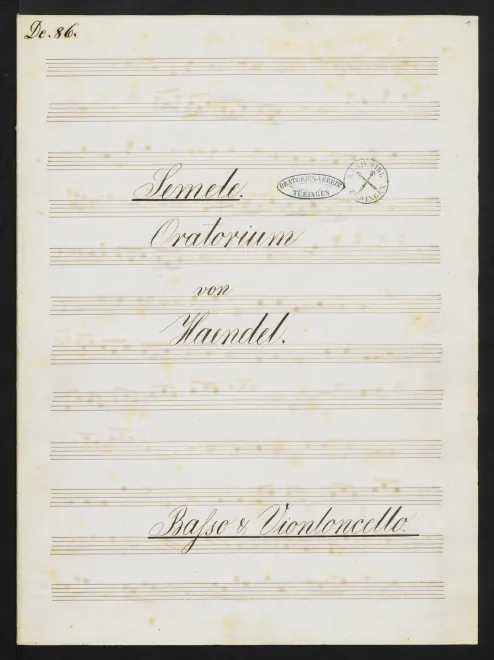 De. 86.
1
Semele.
ORATORIEN-VEREIN
TÜBINGEN
Oratorium
von
Haendel.
Baſso & Vionloncello.